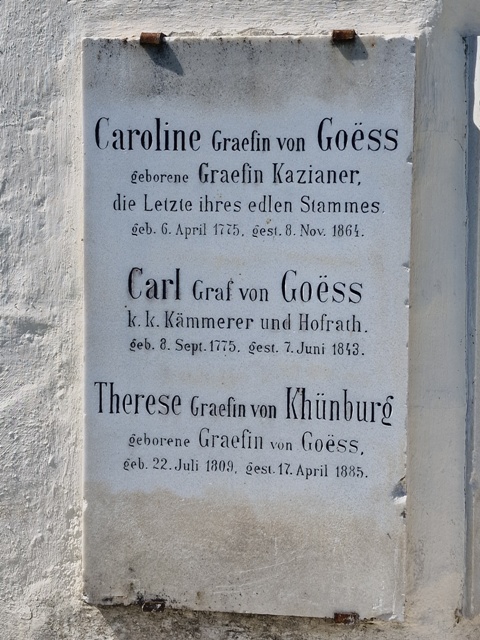 Caroline Graefin von Goëss
geborene Graefin Kazianer,
die Letzte ihres edlen Stammes.
geb. 6. April 1775, gest. 8. Nov. 1864.
Carl Graf von Goëss
k. k. Kämmerer und Hofrath.
geb. 8. Sept. 1775. gest. 7. Juni 1843.
Therese Graefin von Khünburg
geborene Graefin von Goëss,
geb. 22. Juli 1809, gest. 17. April 1885.